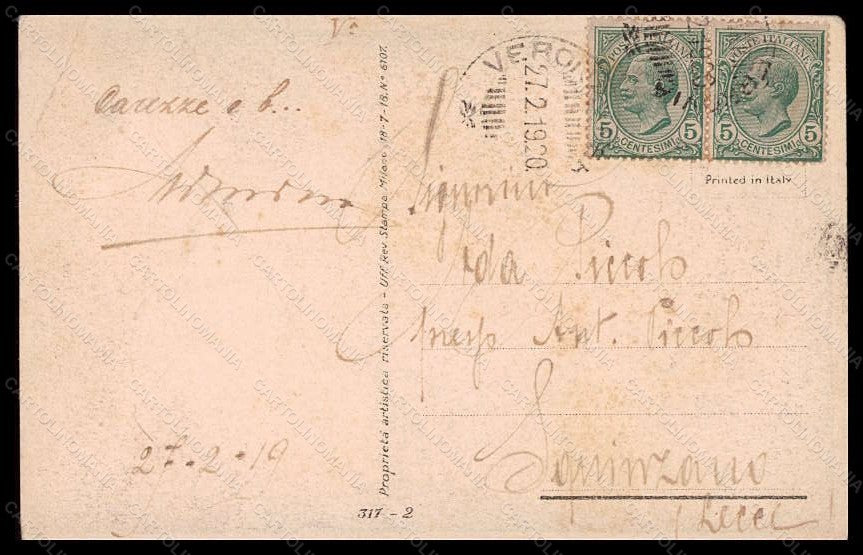 Carezze e b...
27-2-19
Proprietà artistica riservata - Uff. Rev. Stampa Milano 18-7-18. No 6107.
317 - 2
VERO
27.2.1920.
POSTE ITALIANE
5 5
CENTESIMI
POSTE ITALIANE
5 5
CENTESIMI
Printed in Italy
Ida Piccolo
Ant. Piccolo
Squinzano
(Lecce)
CARTOLINOMANIA